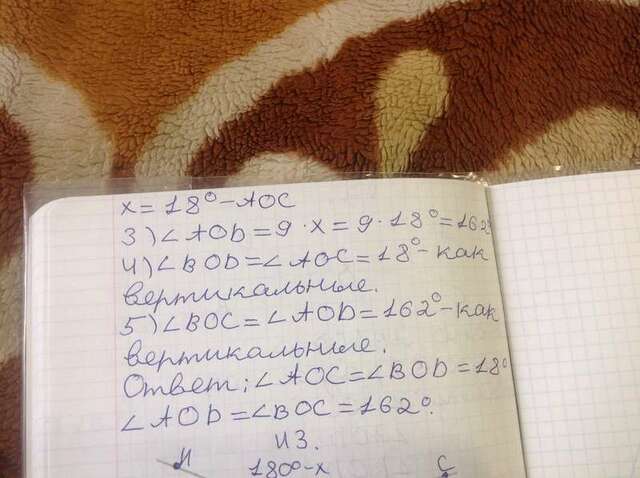 x = 18° - AOC
3) ∠AOD = 9 · x = 9 · 18° = 162°
4) ∠BOD = ∠AOC = 18° - как
вертикальные.
5) ∠BOC = ∠AOD = 162° - как
вертикальные.
Ответ: ∠AOC = ∠BOD = 18°
∠AOD = ∠BOC = 162°.
из.
180° - x C